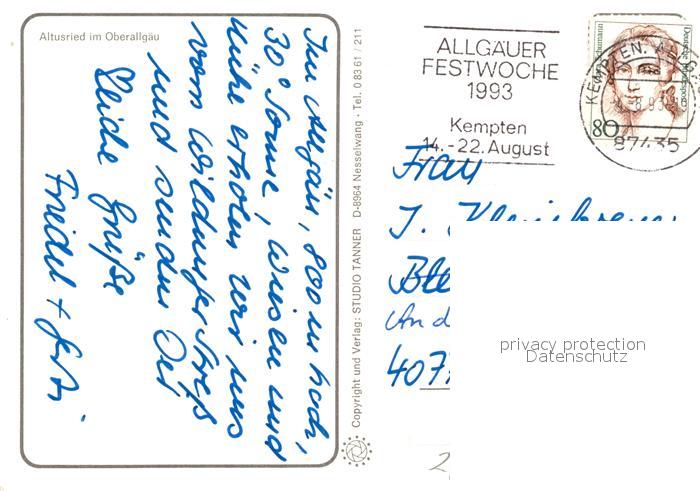 Altusried im Oberallgäu
Im Allgäu, 800 m hoch,
30° Sonne, Wiesen und
Kühe erholen wir uns
vom Wildunger Streß
und senden Dir
liebe Grüße
Friedel +
Copyright und Verlag: STUDIO TANNER D-8964 Nesselwang · Tel. 0 83 61 / 211
ALLGÄUER
FESTWOCHE
1993
Kempten
14.-22. August
KEMPTEN
87435
80
Deutsche Bundespost
Frau
J.
407
privacy protection
Datenschutz